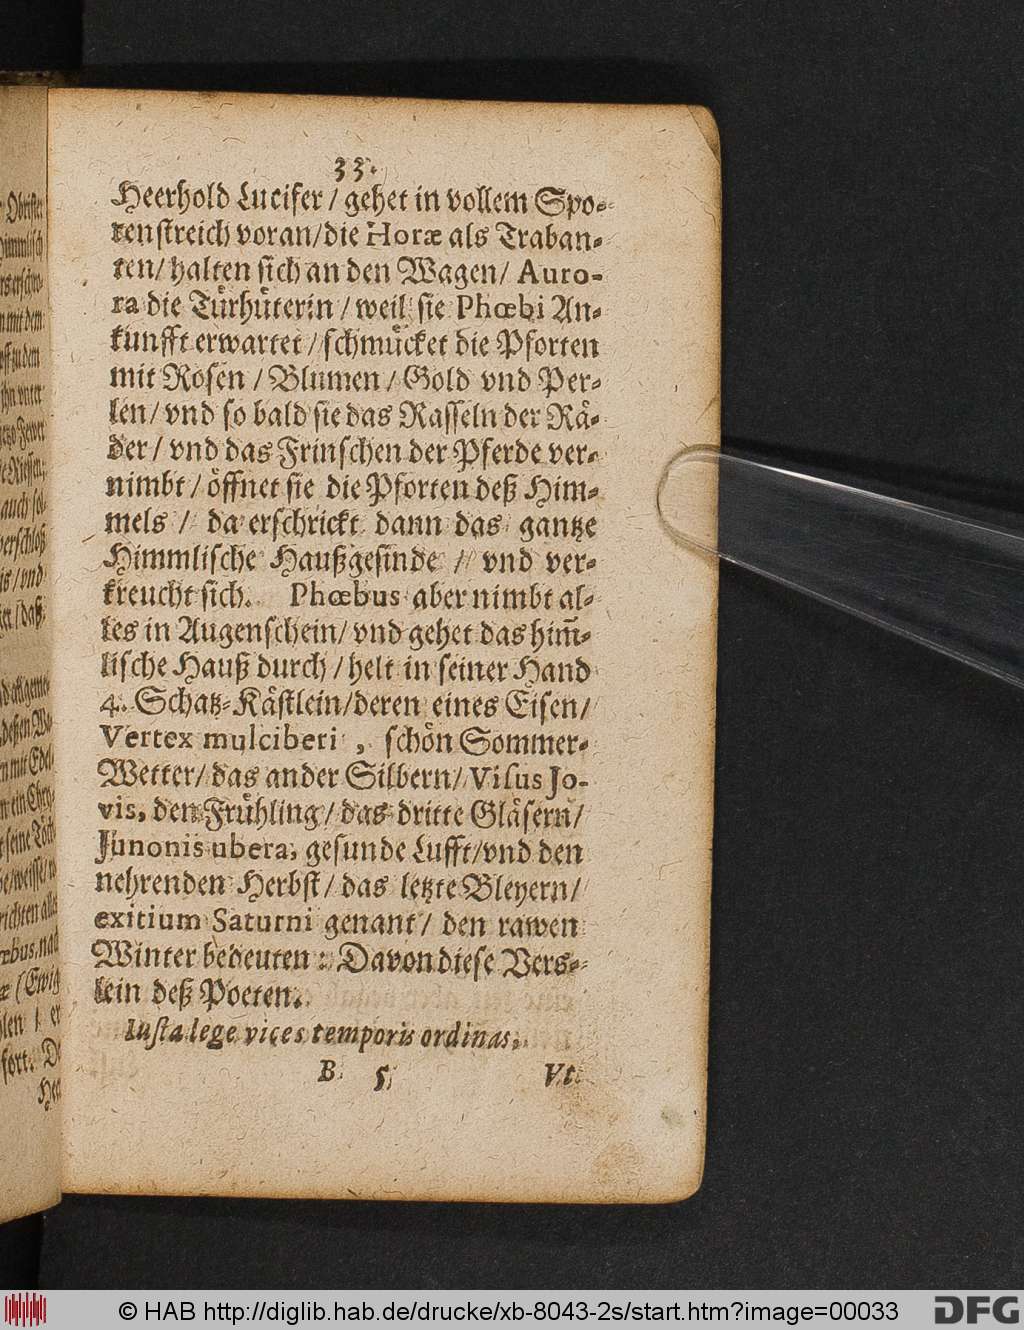 33.
Heerhold Lucifer / gehet in vollem Spo-
renstreich voran/die Horæ als Traban-
ten/ halten sich an den Wagen/ Auro-
ra die Türhüterin / weil sie Phœbi An-
kunfft erwartet / schmücket die Pforten
mit Rosen / Blumen / Gold vnd Per-
len/ vnd so bald sie das Rasseln der Rä-
der / vnd das Frinschen der Pferde ver-
nimbt / öffnet sie die Pforten deß Him-
mels / da erschrickt dann das gantze
Himmlische Haußgesinde / vnd ver-
kreucht sich. Phœbus aber nimbt al-
les in Augenschein/ vnd gehet das him̃-
lische Hauß durch / helt in seiner Hand
4. Schatz-Kästlein/deren eines Eisen/
Vertex mulciberi , schön Sommer-
Wetter/ das ander Silbern/ Visus Jo-
vis, den Frühling/ das dritte Gläsern/
Junonis ubera, gesunde Lufft/vnd den
nehrenden Herbst / das letzte Bleyern/
exitium Saturni genant/ den rawen
Winter bedeuten : Davon diese Vers-
lein deß Poeten.
Iusta lege vices temporis ordinas,
B 5 Vt
Obrister
himmlisch
mit dem
vnter
Riesen
auch sol-
verschloß
/ vnd
/ daß
mit Edel-
seine Töch-
/weisse/
richten alle
œbus, nach
æ (Ewig
len / er
fort. De
Hee
© HAB http://diglib.hab.de/drucke/xb-8043-2s/start.htm?image=00033
DFG